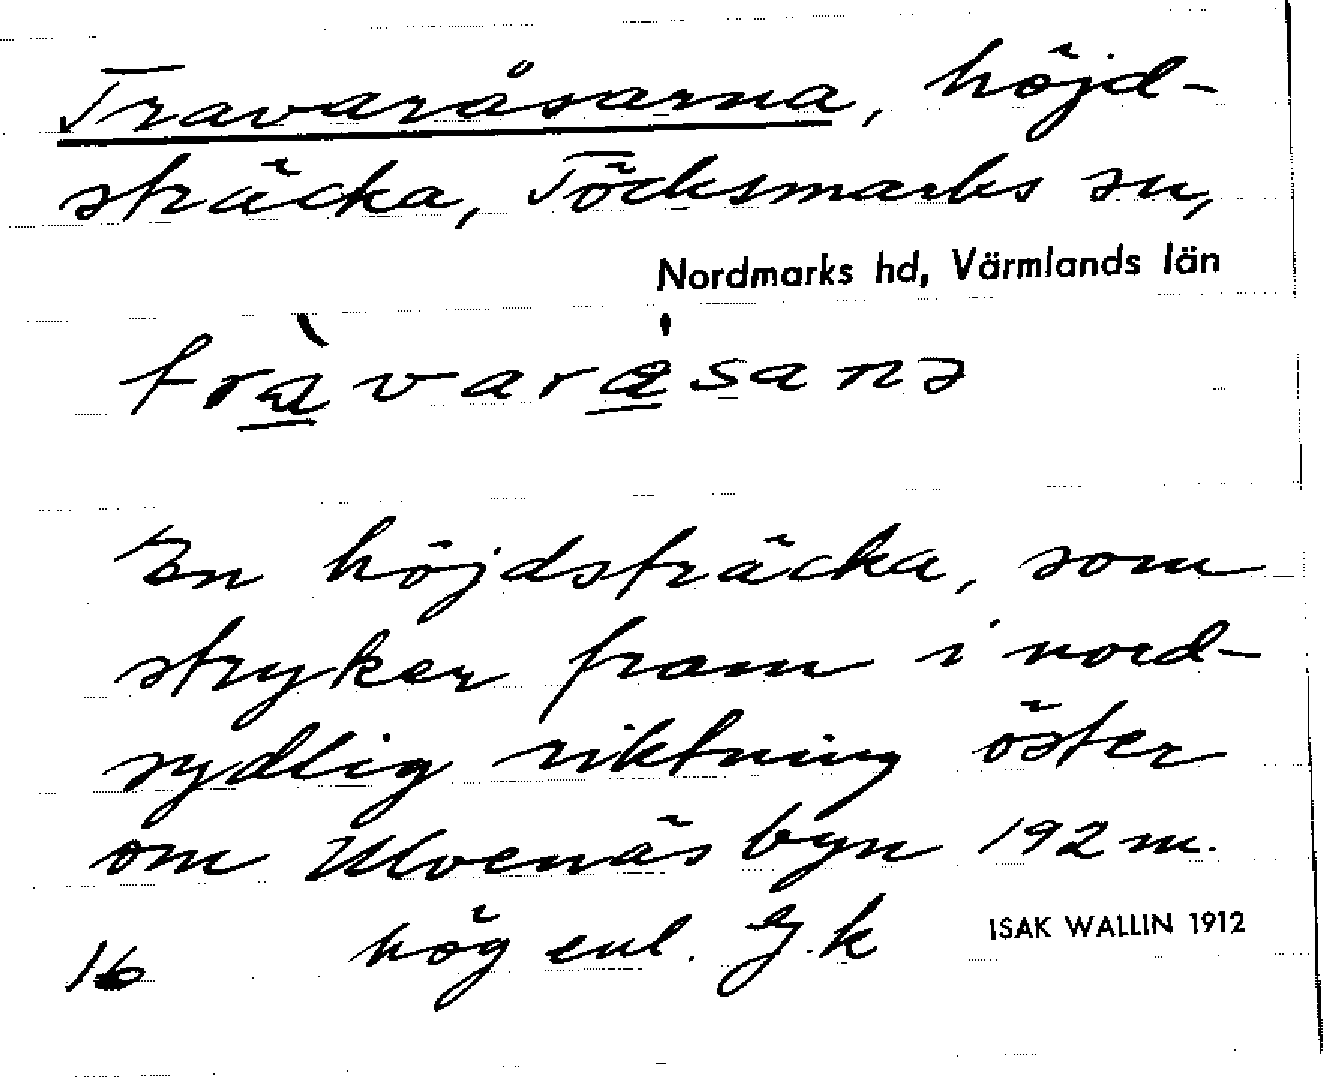 Travaråsarna, höjd-
sträcka, Töcksmarks sn,
Nordmarks hd, Värmlands län
tràvarǻsanə
En höjdsträcka, som
stryker fram i nord-
sydlig riktning öster
om Ulvenäs byn 192 m.
16 hög enl. G.k
ISAK WALLIN 1912